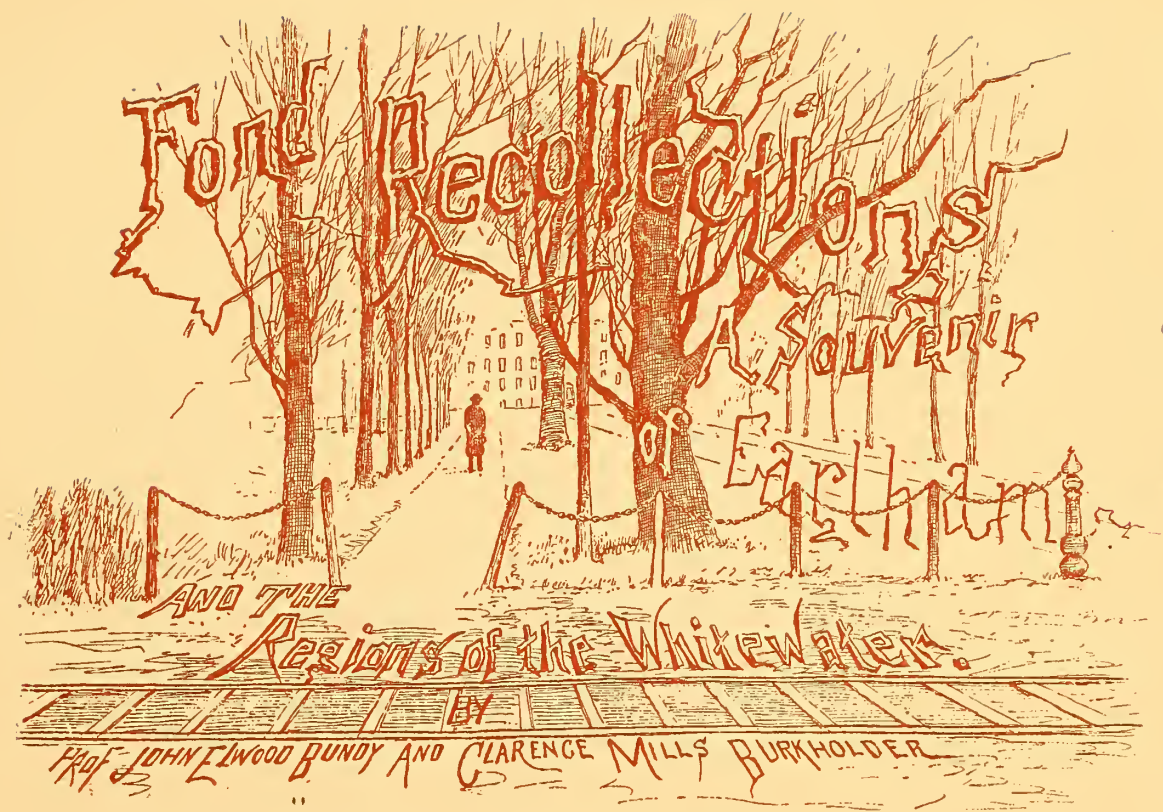 Fond Recollections
A Souvenir
of Earlham
AND THE
Regions of the Whitewater.
BY
PROF JOHN ELWOOD BUNDY AND CLARENCE MILLS BURKHOLDER